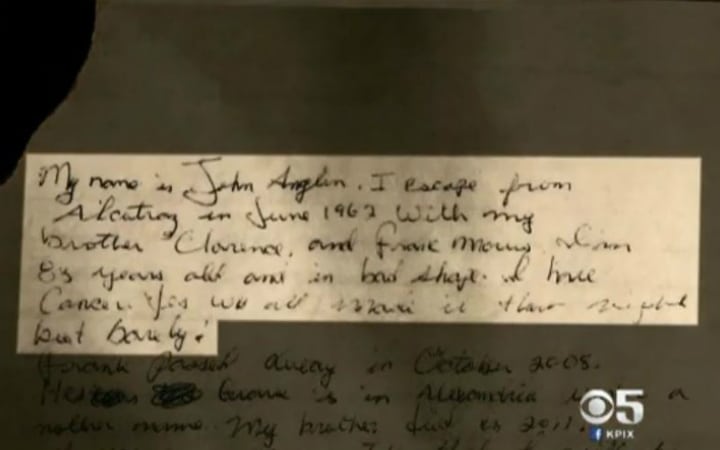 My name is John Anglin. I escape from
Alcatraz in June 1962 With my
brother Clarence, and Frank Morris I'm
83 years old and in bad shape. I have
Cancer. Yes we all Made it that night
but barely!
Frank passed away in October 2008.
His Grave is in Alexandria a
nother name. My brother died 2011.
5
f KPIX